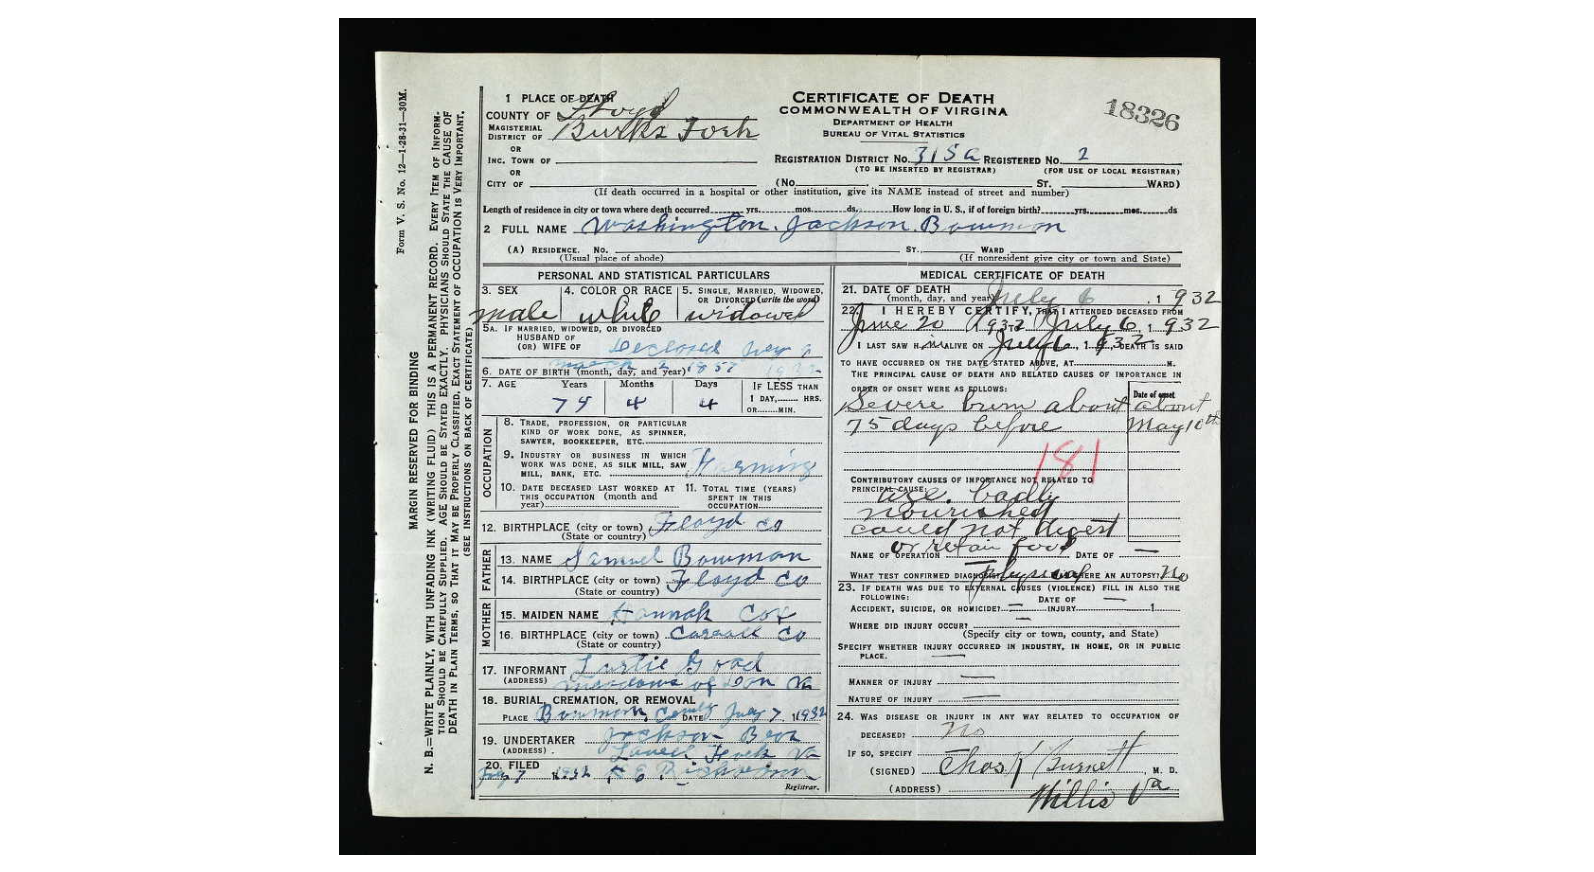 Form V. S. No. 12—1-28-31—30M.
MARGIN RESERVED FOR BINDING
N. B.—WRITE PLAINLY, WITH UNFADING INK (WRITING FLUID) THIS IS A PERMANENT RECORD. EVERY ITEM OF INFORM-
TION SHOULD BE CAREFULLY SUPPLIED. AGE SHOULD BE STATED EXACTLY. PHYSICIANS SHOULD STATE THE CAUSE OF
DEATH IN PLAIN TERMS, SO THAT IT MAY BE PROPERLY CLASSIFIED. EXACT STATEMENT OF OCCUPATION IS VERY IMPORTANT.
(SEE INSTRUCTIONS ON BACK OF CERTIFICATE)
CERTIFICATE OF DEATH
COMMONWEALTH OF VIRGINIA
DEPARTMENT OF HEALTH
BUREAU OF VITAL STATISTICS
18326
1 PLACE OF DEATH
COUNTY OF Floyd
MAGISTERIAL DISTRICT OF Burks Fork
OR
INC. TOWN OF
OR
CITY OF
REGISTRATION DISTRICT NO. 315a REGISTERED NO. 2
(TO BE INSERTED BY REGISTRAR) (FOR USE OF LOCAL REGISTRAR)
(No. ST. WARD)
(If death occurred in a hospital or other institution, give its NAME instead of street and number)
Length of residence in city or town where death occurred yrs. mos. ds. How long in U. S., if of foreign birth? yrs. mos. ds
2 FULL NAME Washington. Jackson. Bowman
(A) RESIDENCE. No. ST. WARD
(Usual place of abode) (If nonresident give city or town and State)
PERSONAL AND STATISTICAL PARTICULARS
3. SEX male
4. COLOR OR RACE white
5. SINGLE, MARRIED, WIDOWED, OR DIVORCED (write the word) widowed
5A. IF MARRIED, WIDOWED, OR DIVORCED
HUSBAND OF
(OR) WIFE OF
6. DATE OF BIRTH (month, day, and year) March 2 1857
7. AGE Years Months Days IF LESS THAN
75 4 4 1 DAY, HRS.
OR MIN.
OCCUPATION
8. TRADE, PROFESSION, OR PARTICULAR
KIND OF WORK DONE, AS SPINNER,
SAWYER, BOOKKEEPER, ETC.
9. INDUSTRY OR BUSINESS IN WHICH
WORK WAS DONE, AS SILK MILL, SAW
MILL, BANK, ETC. Farming
10. DATE DECEASED LAST WORKED AT
THIS OCCUPATION (month and
year)
11. TOTAL TIME (YEARS)
SPENT IN THIS
OCCUPATION
12. BIRTHPLACE (city or town) Floyd co
(State or country)
FATHER
13. NAME Samuel Bowman
14. BIRTHPLACE (city or town) Floyd co
(State or country)
MOTHER
15. MAIDEN NAME Hannah Cox
16. BIRTHPLACE (city or town) Carroll co
(State or country)
17. INFORMANT
(ADDRESS) meadows of Dan Va
18. BURIAL, CREMATION, OR REMOVAL
PLACE Bowman DATE July 7, 1932
19. UNDERTAKER Jackson Bros
(ADDRESS) Va
20. FILED July 7 1932
Registrar.
MEDICAL CERTIFICATE OF DEATH
21. DATE OF DEATH
(month, day, and year) July 6, 1932
22. I HEREBY CERTIFY, THAT I ATTENDED DECEASED FROM
June 20 1932 TO July 6, 1932
I LAST SAW HIM ALIVE ON July 6, 1932 DEATH IS SAID
TO HAVE OCCURRED ON THE DATE STATED ABOVE, AT M.
THE PRINCIPAL CAUSE OF DEATH AND RELATED CAUSES OF IMPORTANCE IN
ORDER OF ONSET WERE AS FOLLOWS:
Date of onset
Severe burn about about
75 days before May 10th
181
CONTRIBUTORY CAUSES OF IMPORTANCE NOT RELATED TO
PRINCIPAL CAUSE:
age. badly
nourished
could not digest
or retain food
NAME OF OPERATION DATE OF —
WHAT TEST CONFIRMED DIAGNOSIS? physical WAS THERE AN AUTOPSY? No
23. IF DEATH WAS DUE TO EXTERNAL CAUSES (VIOLENCE) FILL IN ALSO THE
FOLLOWING:
ACCIDENT, SUICIDE, OR HOMICIDE? — DATE OF INJURY — 1
WHERE DID INJURY OCCUR? —
(Specify city or town, county, and State)
SPECIFY WHETHER INJURY OCCURRED IN INDUSTRY, IN HOME, OR IN PUBLIC
PLACE. —
MANNER OF INJURY —
NATURE OF INJURY —
24. WAS DISEASE OR INJURY IN ANY WAY RELATED TO OCCUPATION OF
DECEASED? No
IF SO, SPECIFY
(SIGNED) Chas K Burnett, M. D.
(ADDRESS) Willis Va